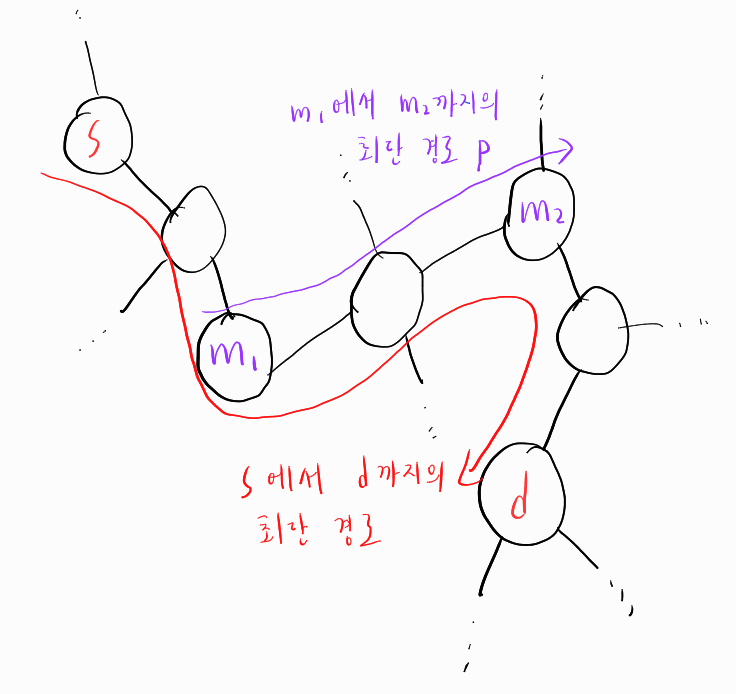 m₁에서 m₂까지의
최단 경로 p
s
m₂
m₁
s에서 d까지의
최단 경로
d